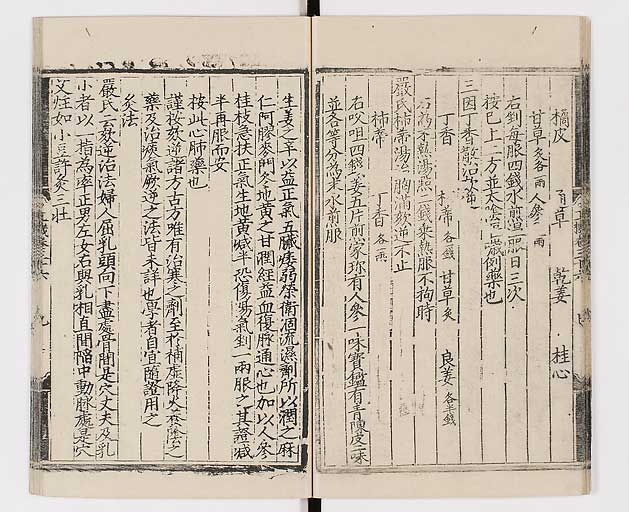 橘皮 甘草 乾姜 桂心
甘草炙各一兩人參一兩
右剉每服四錢水煎溫服日三次
按已上二方並太陰三歲例藥也
三因丁香散治欬逆
丁香 柿蒂各一錢 甘草炙 良姜各半錢
右為末熱湯點二錢乘熱服不拘時
嚴氏柿蒂湯治胸滿欬逆不止
柿蒂 丁香各一兩
右㕮咀四錢姜五片煎家珍有人參一味寶鑑有青陳皮二味
並各等分為末水煎服
生姜之辛以益正氣五臟痿弱榮衛涸流濕劑所以潤之麻
仁阿膠麥門冬地黃之甘潤經益血復脉通心也加以人參
桂枝急扶正氣生地黃減半恐傷陽氣剉一兩服之其證減
半再服而安
按此心肺藥也
謹按欬逆諸方古方唯有治寒之劑至於補虛降火養陰之
藥及治痰氣厥逆之法皆未詳也學者自宜隨證用之
灸法
嚴氏云欬逆治法婦人屈乳頭向下盡處骨間是穴丈夫及乳
小者以一指為率正男左女右與乳相直間陷中動脉處是穴
艾炷如小豆許灸三壯